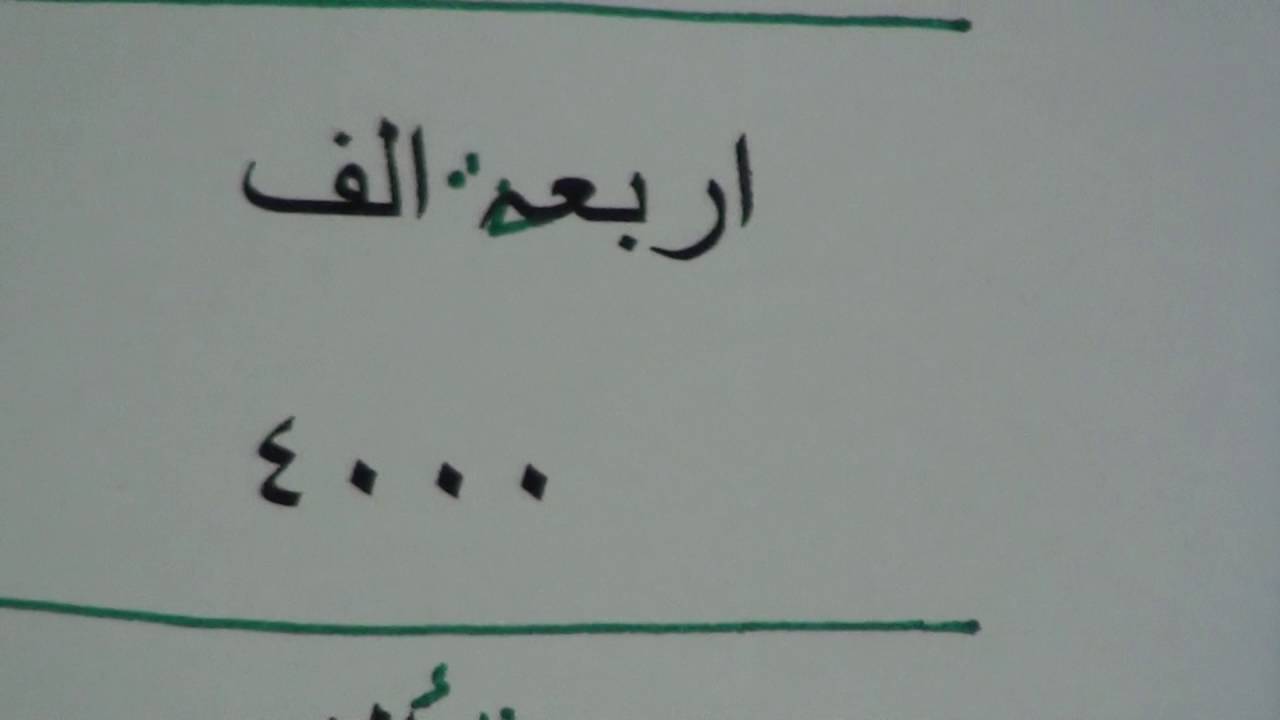 اربعة الف
٤٠٠٠